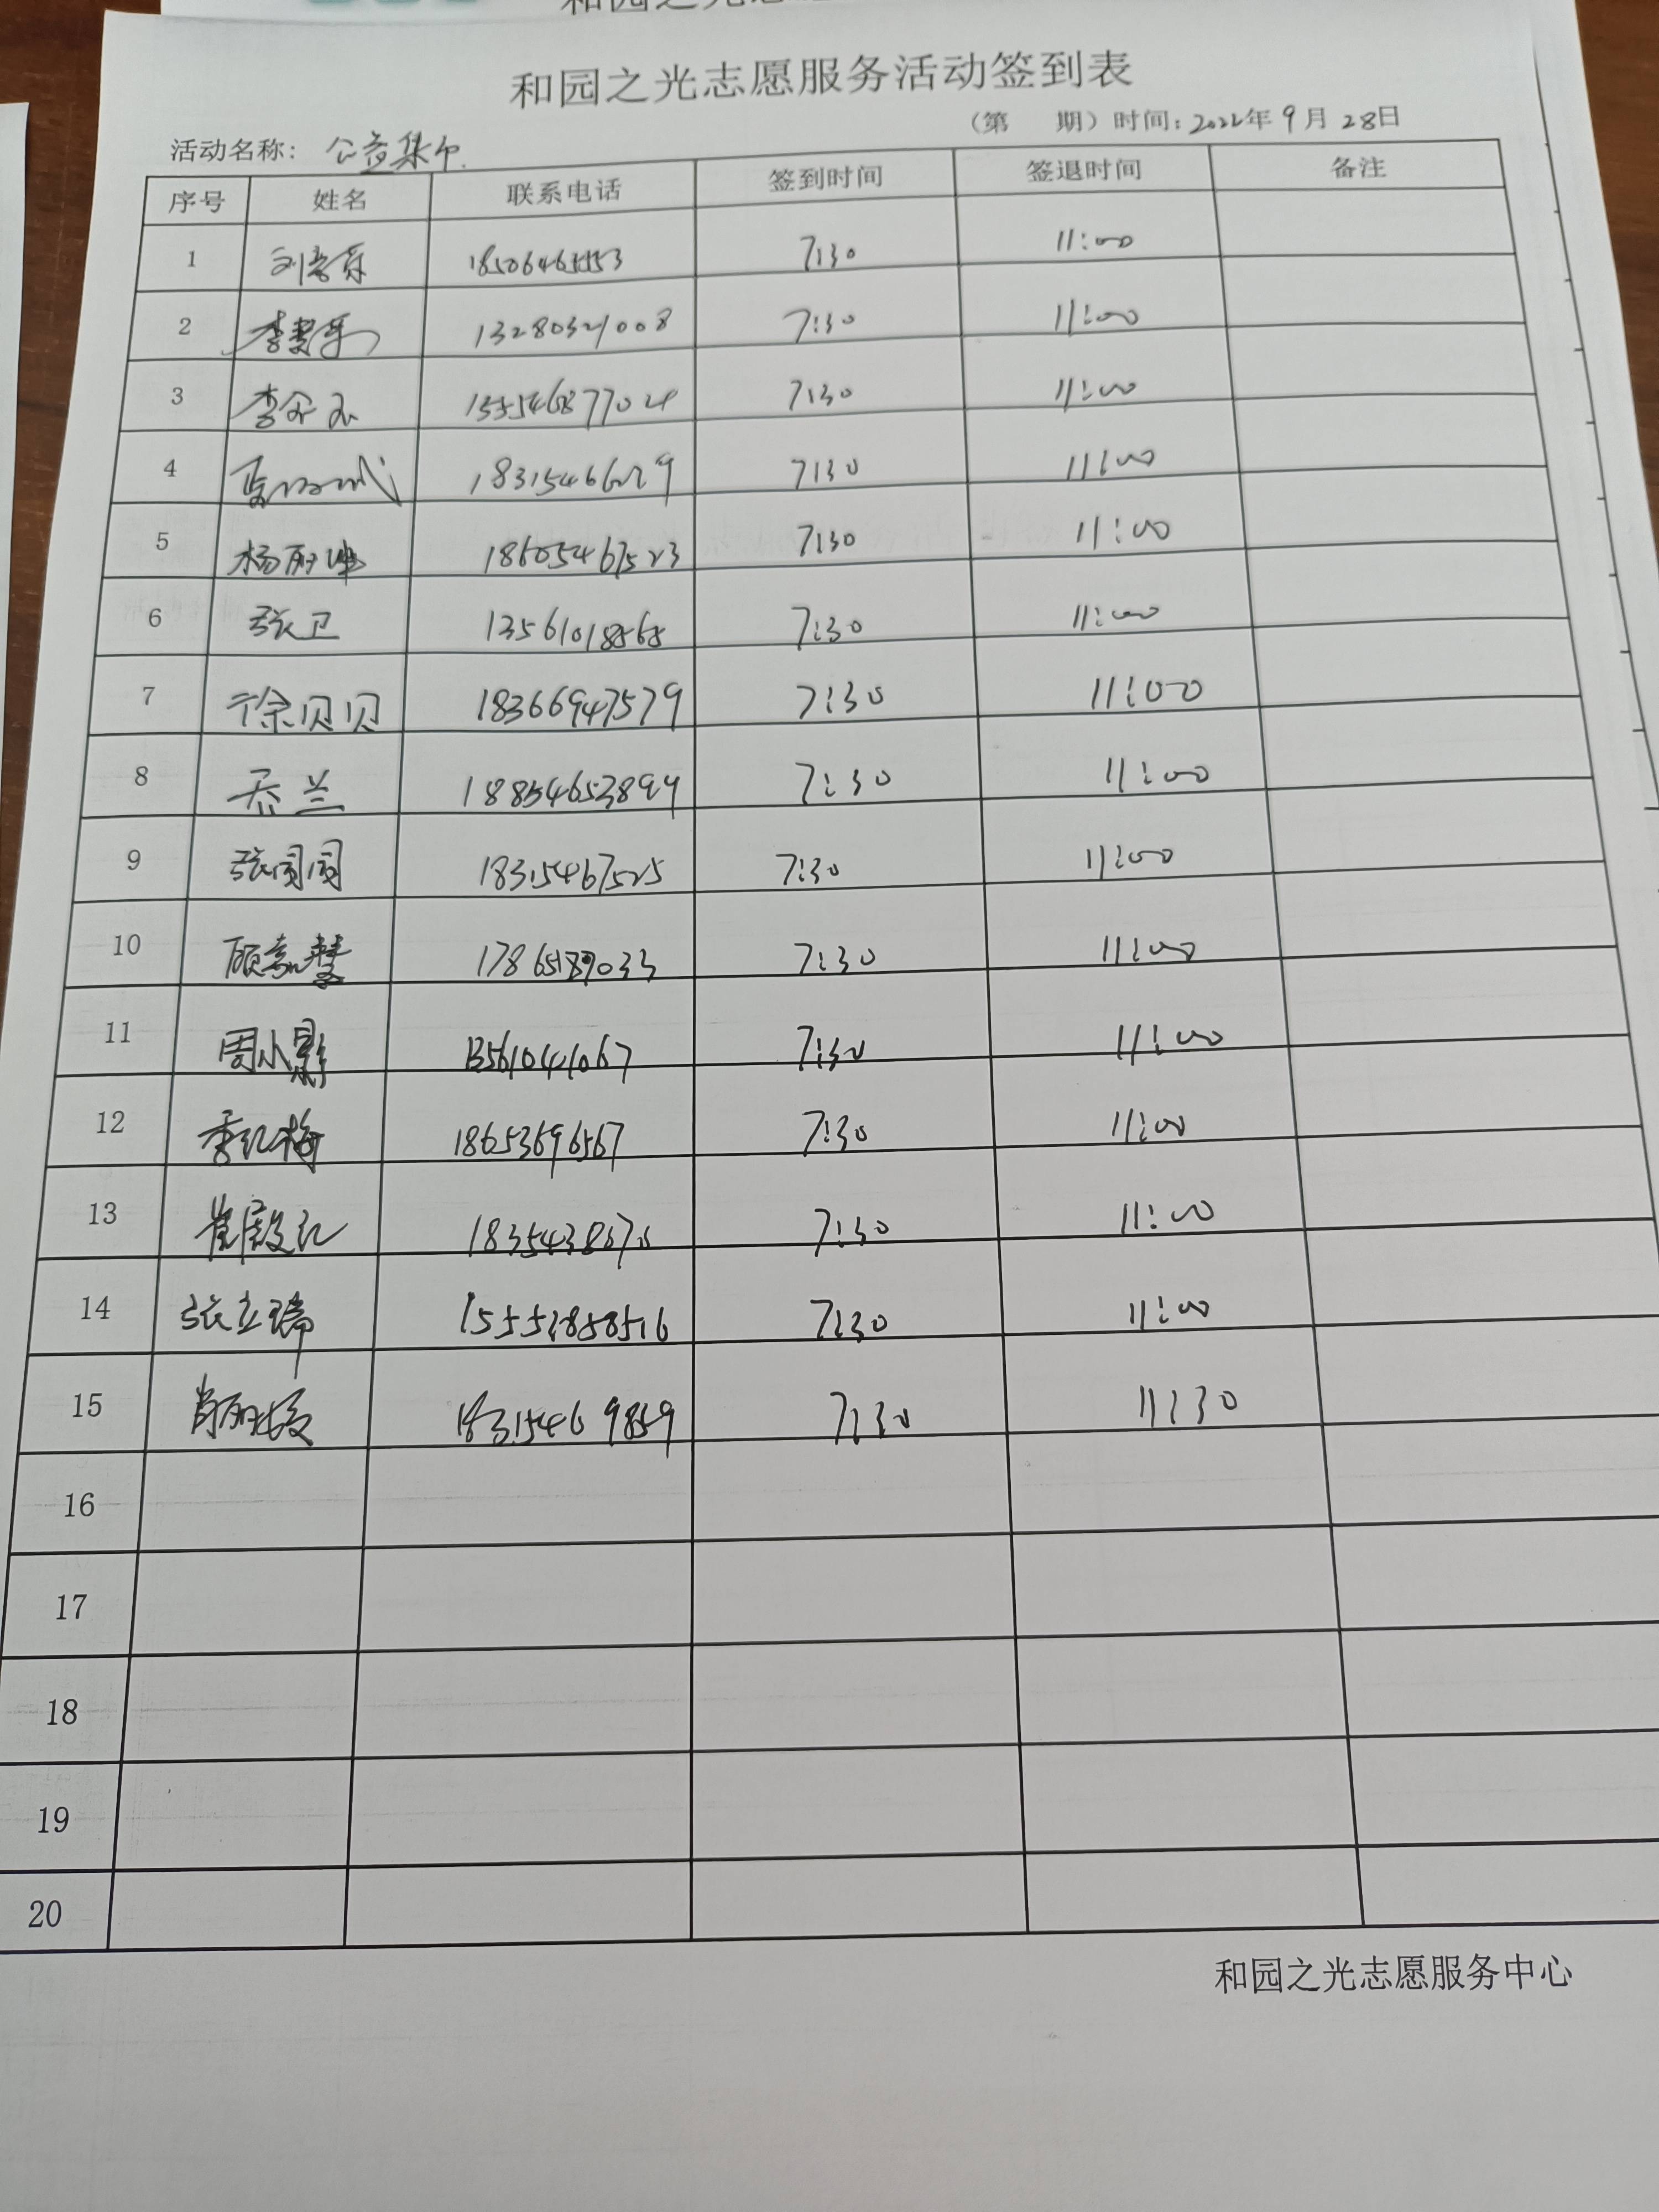 和园之光志愿服务活动签到表
（第 期）时间：2022年9月28日
活动名称：公益集市
序号 姓名 联系电话 签到时间 签退时间 备注
1 7:30 11:00
2 13280321008 7:30 11:00
3 15554687704 7:30 11:00
4 7:30 11:00
5 18605467523 7:30 11:00
6 张卫 13561018868 7:30 11:00
7 徐贝贝 18366947579 7:30 11:00
8 18854653899 7:30 11:00
9 张圆圆 18315467525 7:30 11:00
10 顾嘉慧 17865189033 7:30 11:00
11 周小影 13561041067 7:30 11:00
12 李红梅 18653696567 7:30 11:00
13 崔殿红 7:30 11:00
14 张立瑞 15552858516 7:30 11:00
15 18315469859 7:30 11:30
16
17
18
19
20
和园之光志愿服务中心